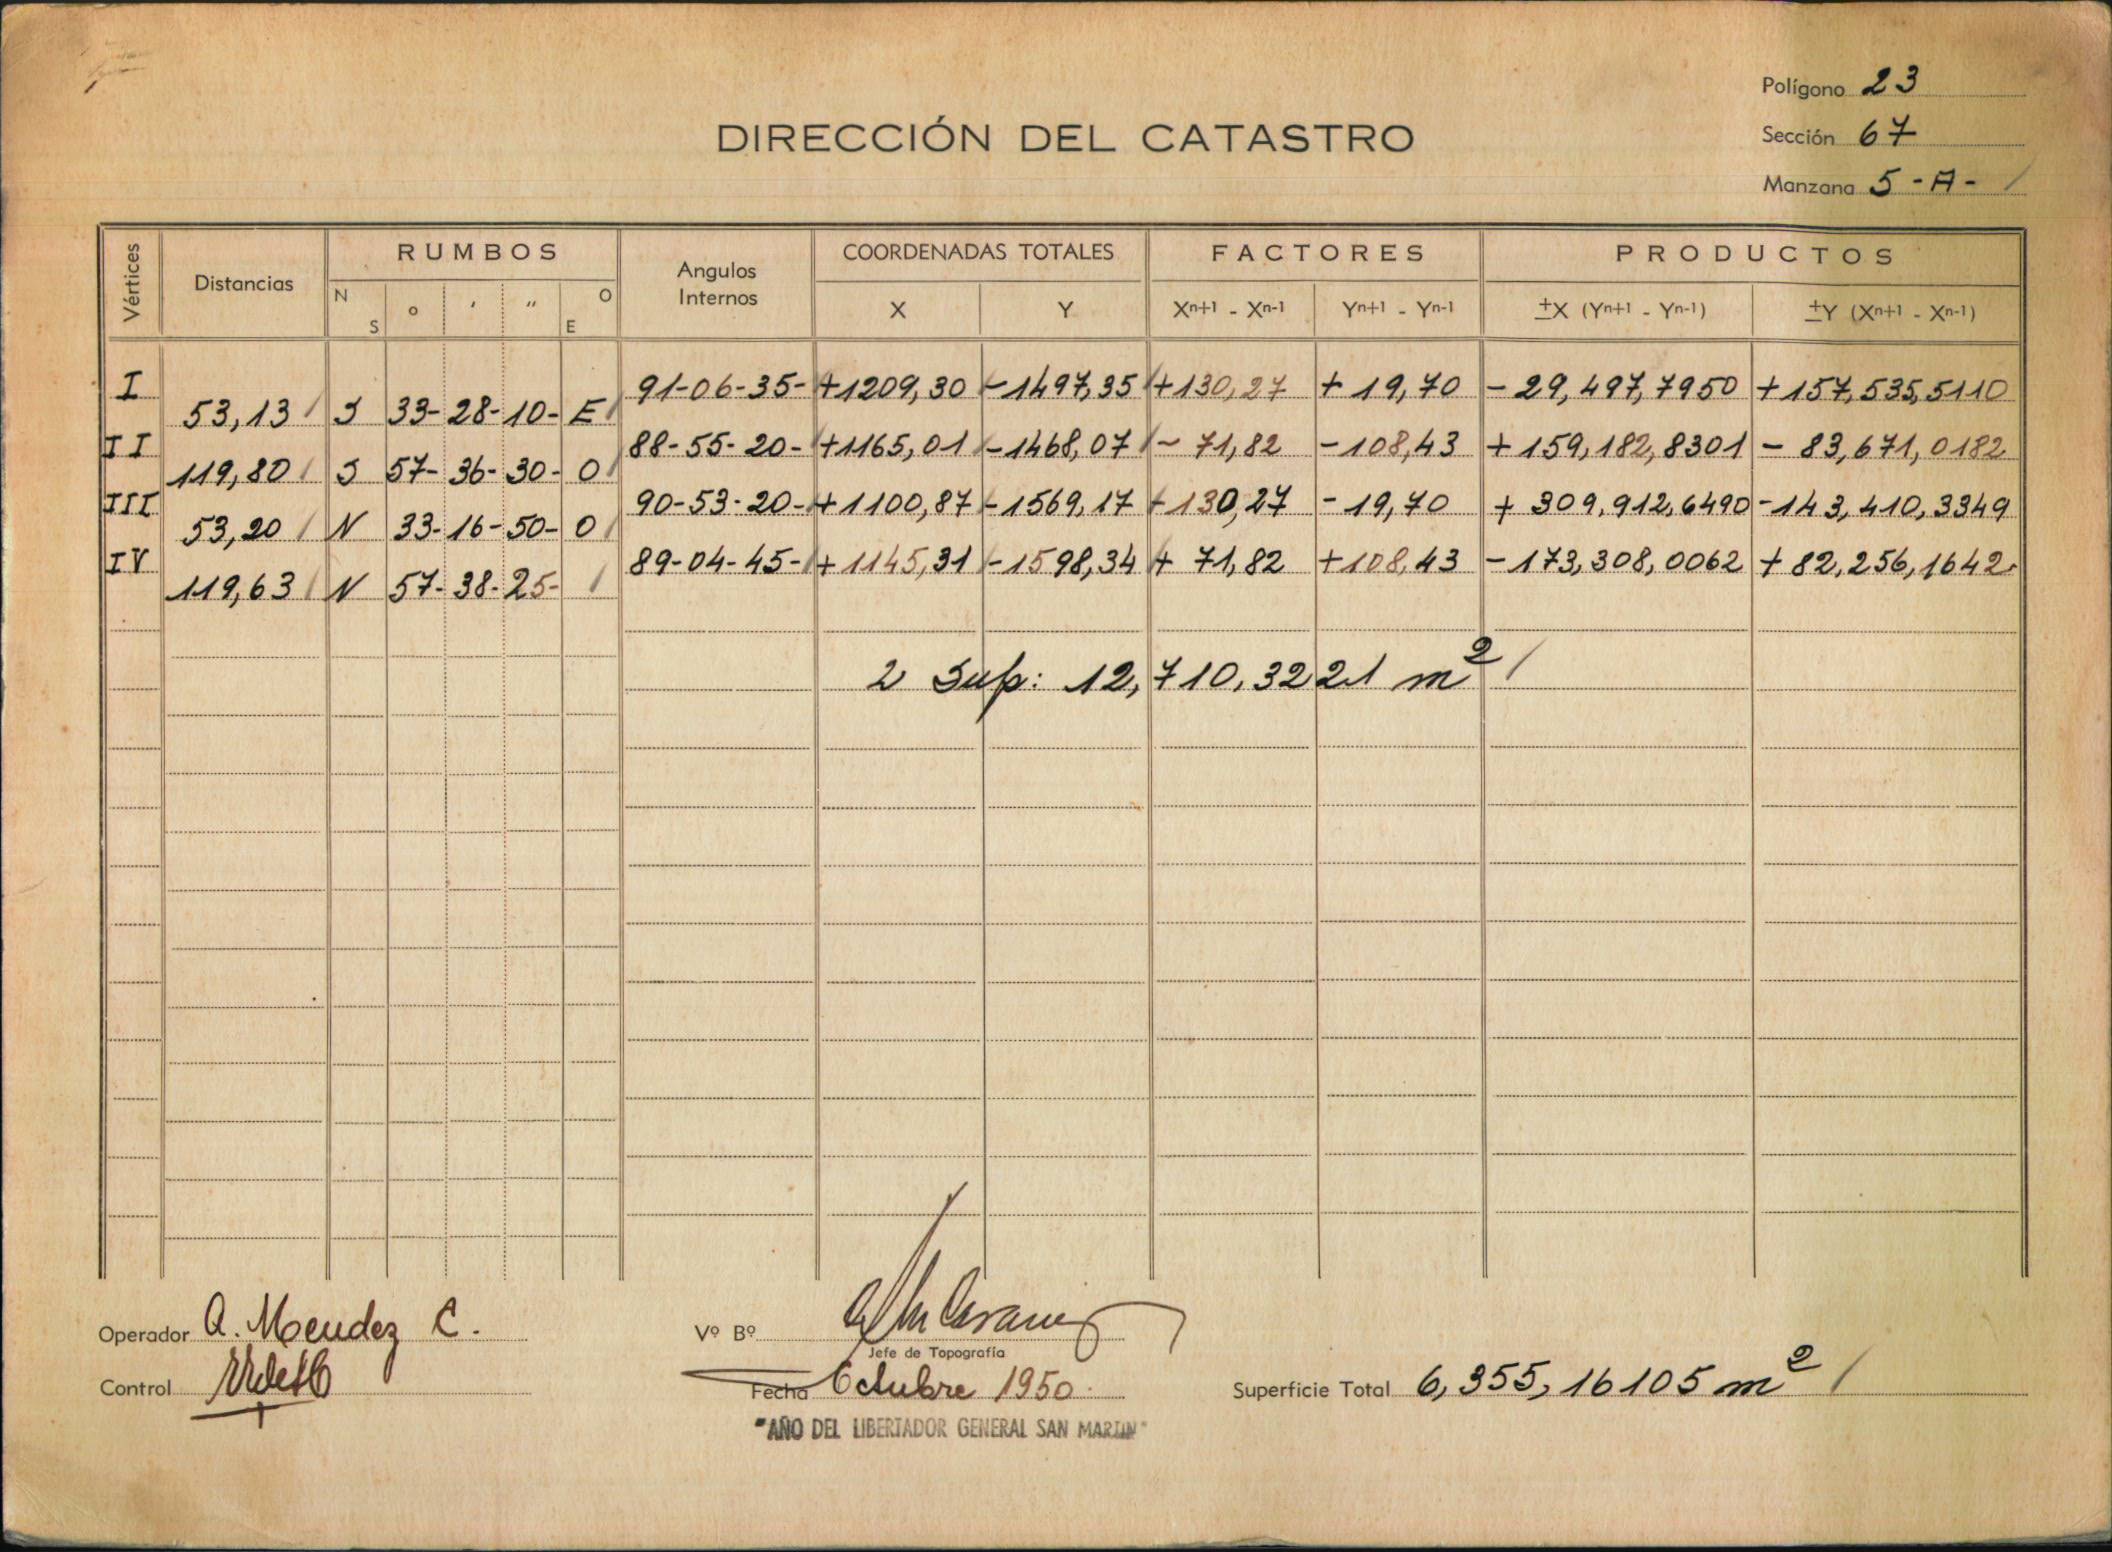 Polígono 23
DIRECCIÓN DEL CATASTRO
Sección 67
Manzana 5-A-
Vértices Distancias RUMBOS Angulos Internos COORDENADAS TOTALES FACTORES PRODUCTOS
N S o ' " O E X Y Xn+1 - Xn-1 Yn+1 - Yn-1 ±X (Yn+1 - Yn-1) ±Y (Xn+1 - Xn-1)
I 91-06-35- +1209,30 -1497,35 +130,27 + 19,70 - 29,497,7950 +157,535,5110
53,13 S 33-28-10- E
II 88-55-20- +1165,01 -1468,07 - 71,82 -108,43 +159,182,8301 - 83,671,0182
119,80 S 57-36-30- O
III 90-53-20- +1100,87 -1569,17 +130,27 -19,70 + 309,912,6490 -143,410,3349
53,20 N 33-16-50- O
IV 89-04-45- +1145,31 -1598,34 + 71,82 +108,43 -173,308,0062 + 82,256,1642
119,63 N 57-38-25-
2 Sup: 12,710,3221 m²
Operador A. Mendez C.
Vº Bº
Jefe de Topografía
Control
Fecha Octubre 1950.
Superficie Total 6,355,16105 m²
"AÑO DEL LIBERTADOR GENERAL SAN MARTIN"